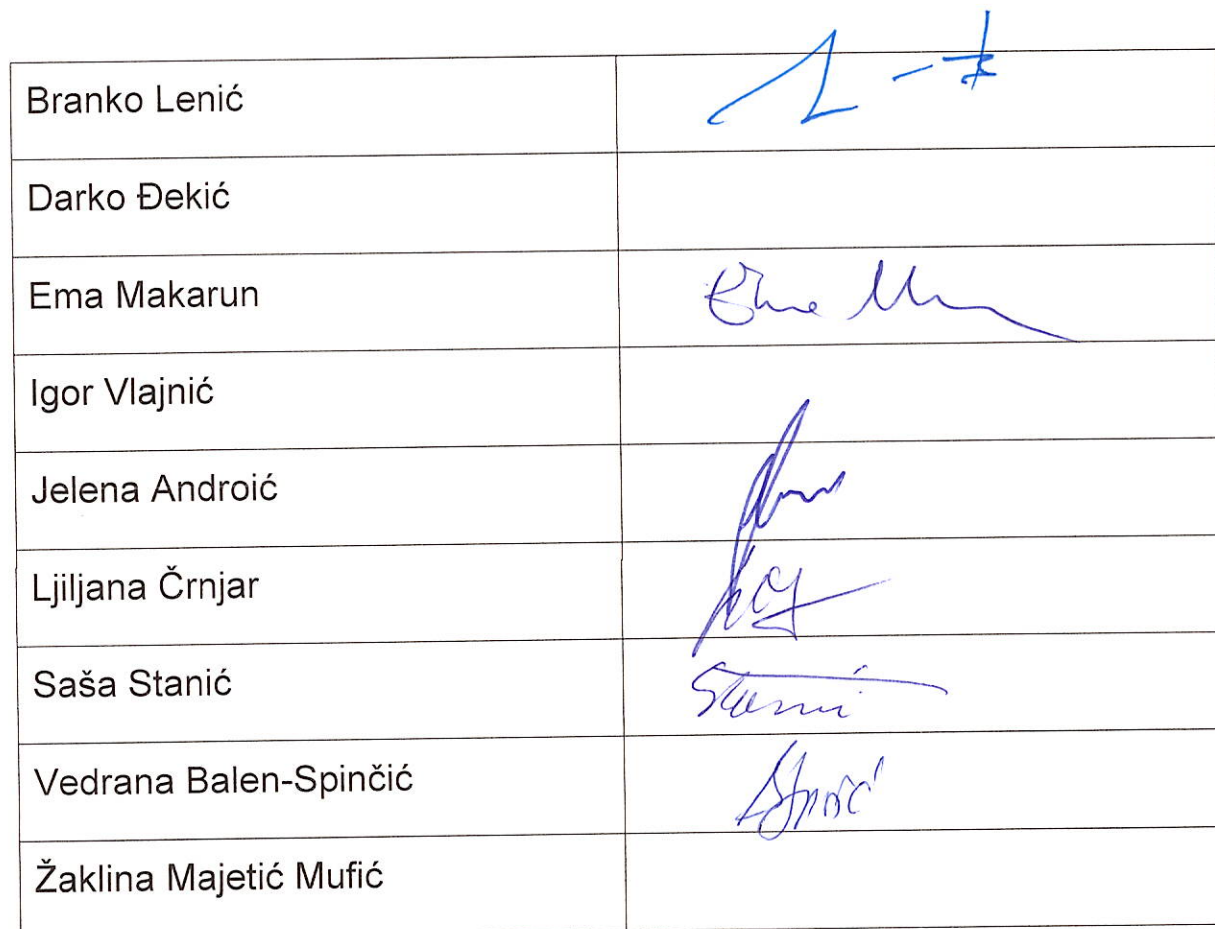 Branko Lenić
Darko Đekić
Ema Makarun
Igor Vlajnić
Jelena Androić
Ljiljana Črnjar
Saša Stanić
Stanić
Vedrana Balen-Spinčić
Žaklina Majetić Mufić